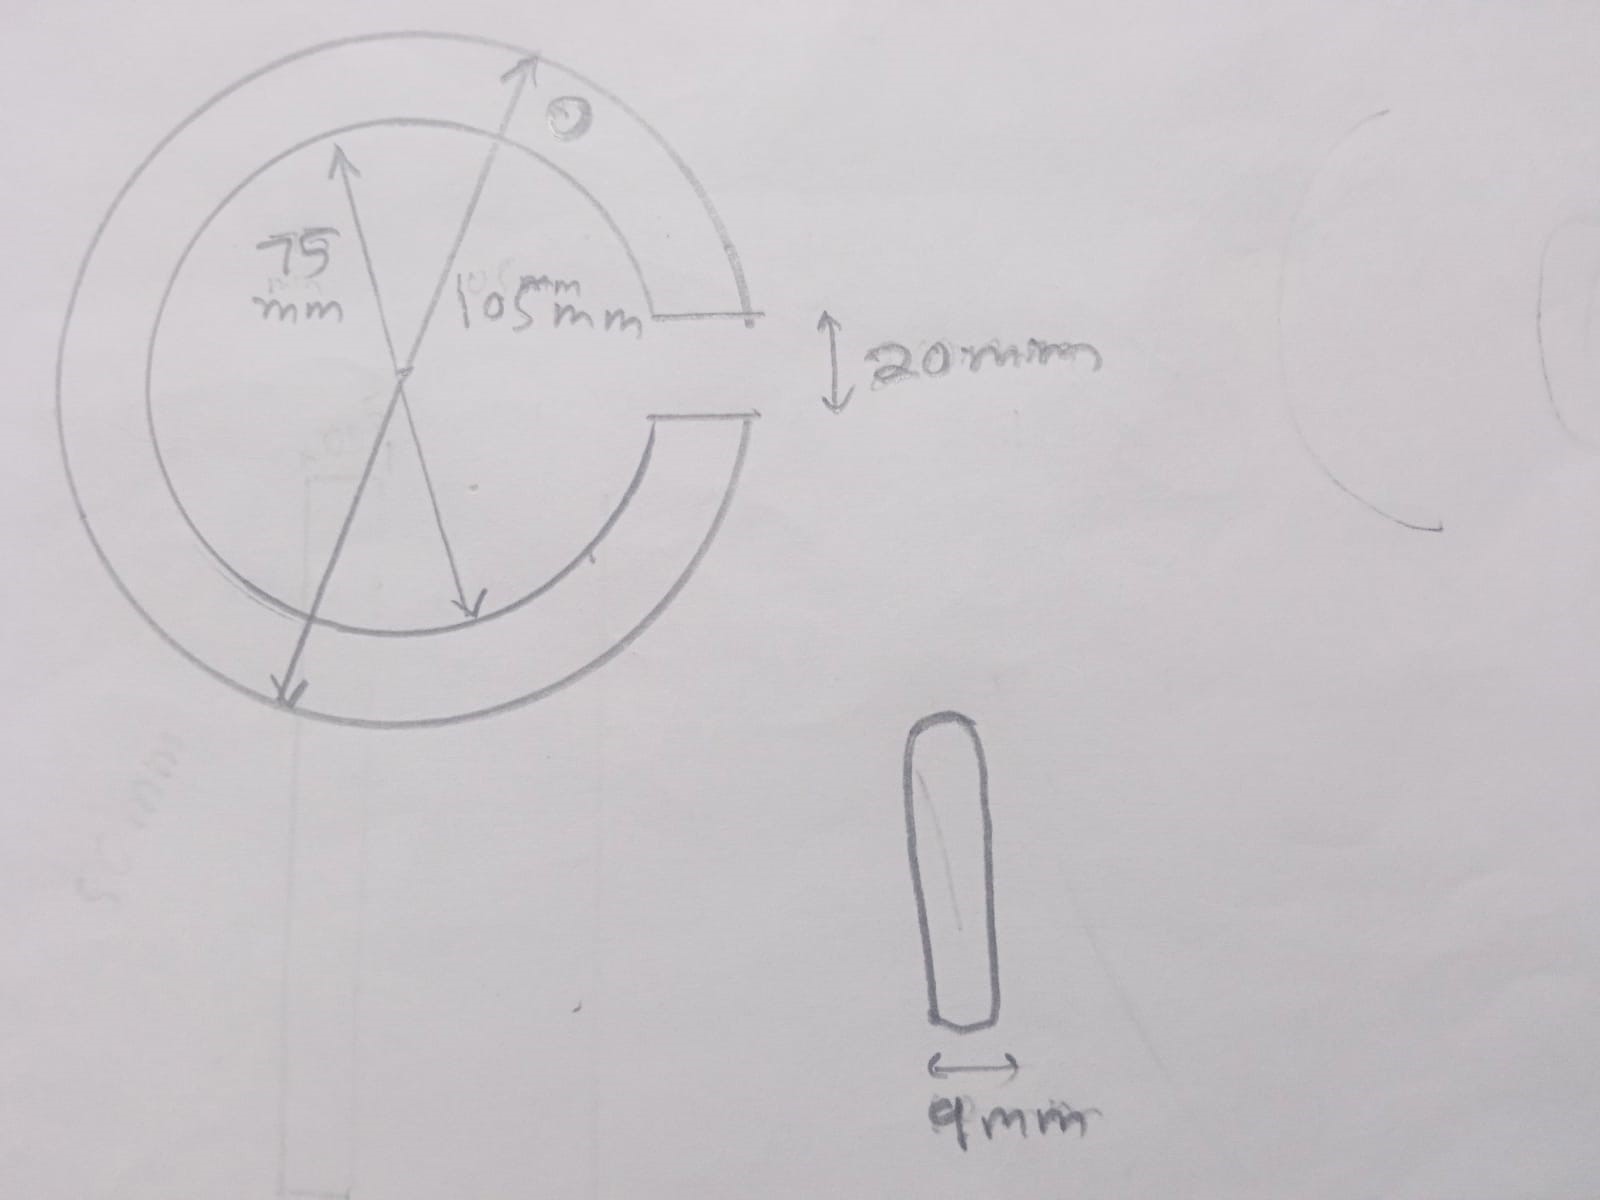 75
mm
105mm
mm
20mm
9mm